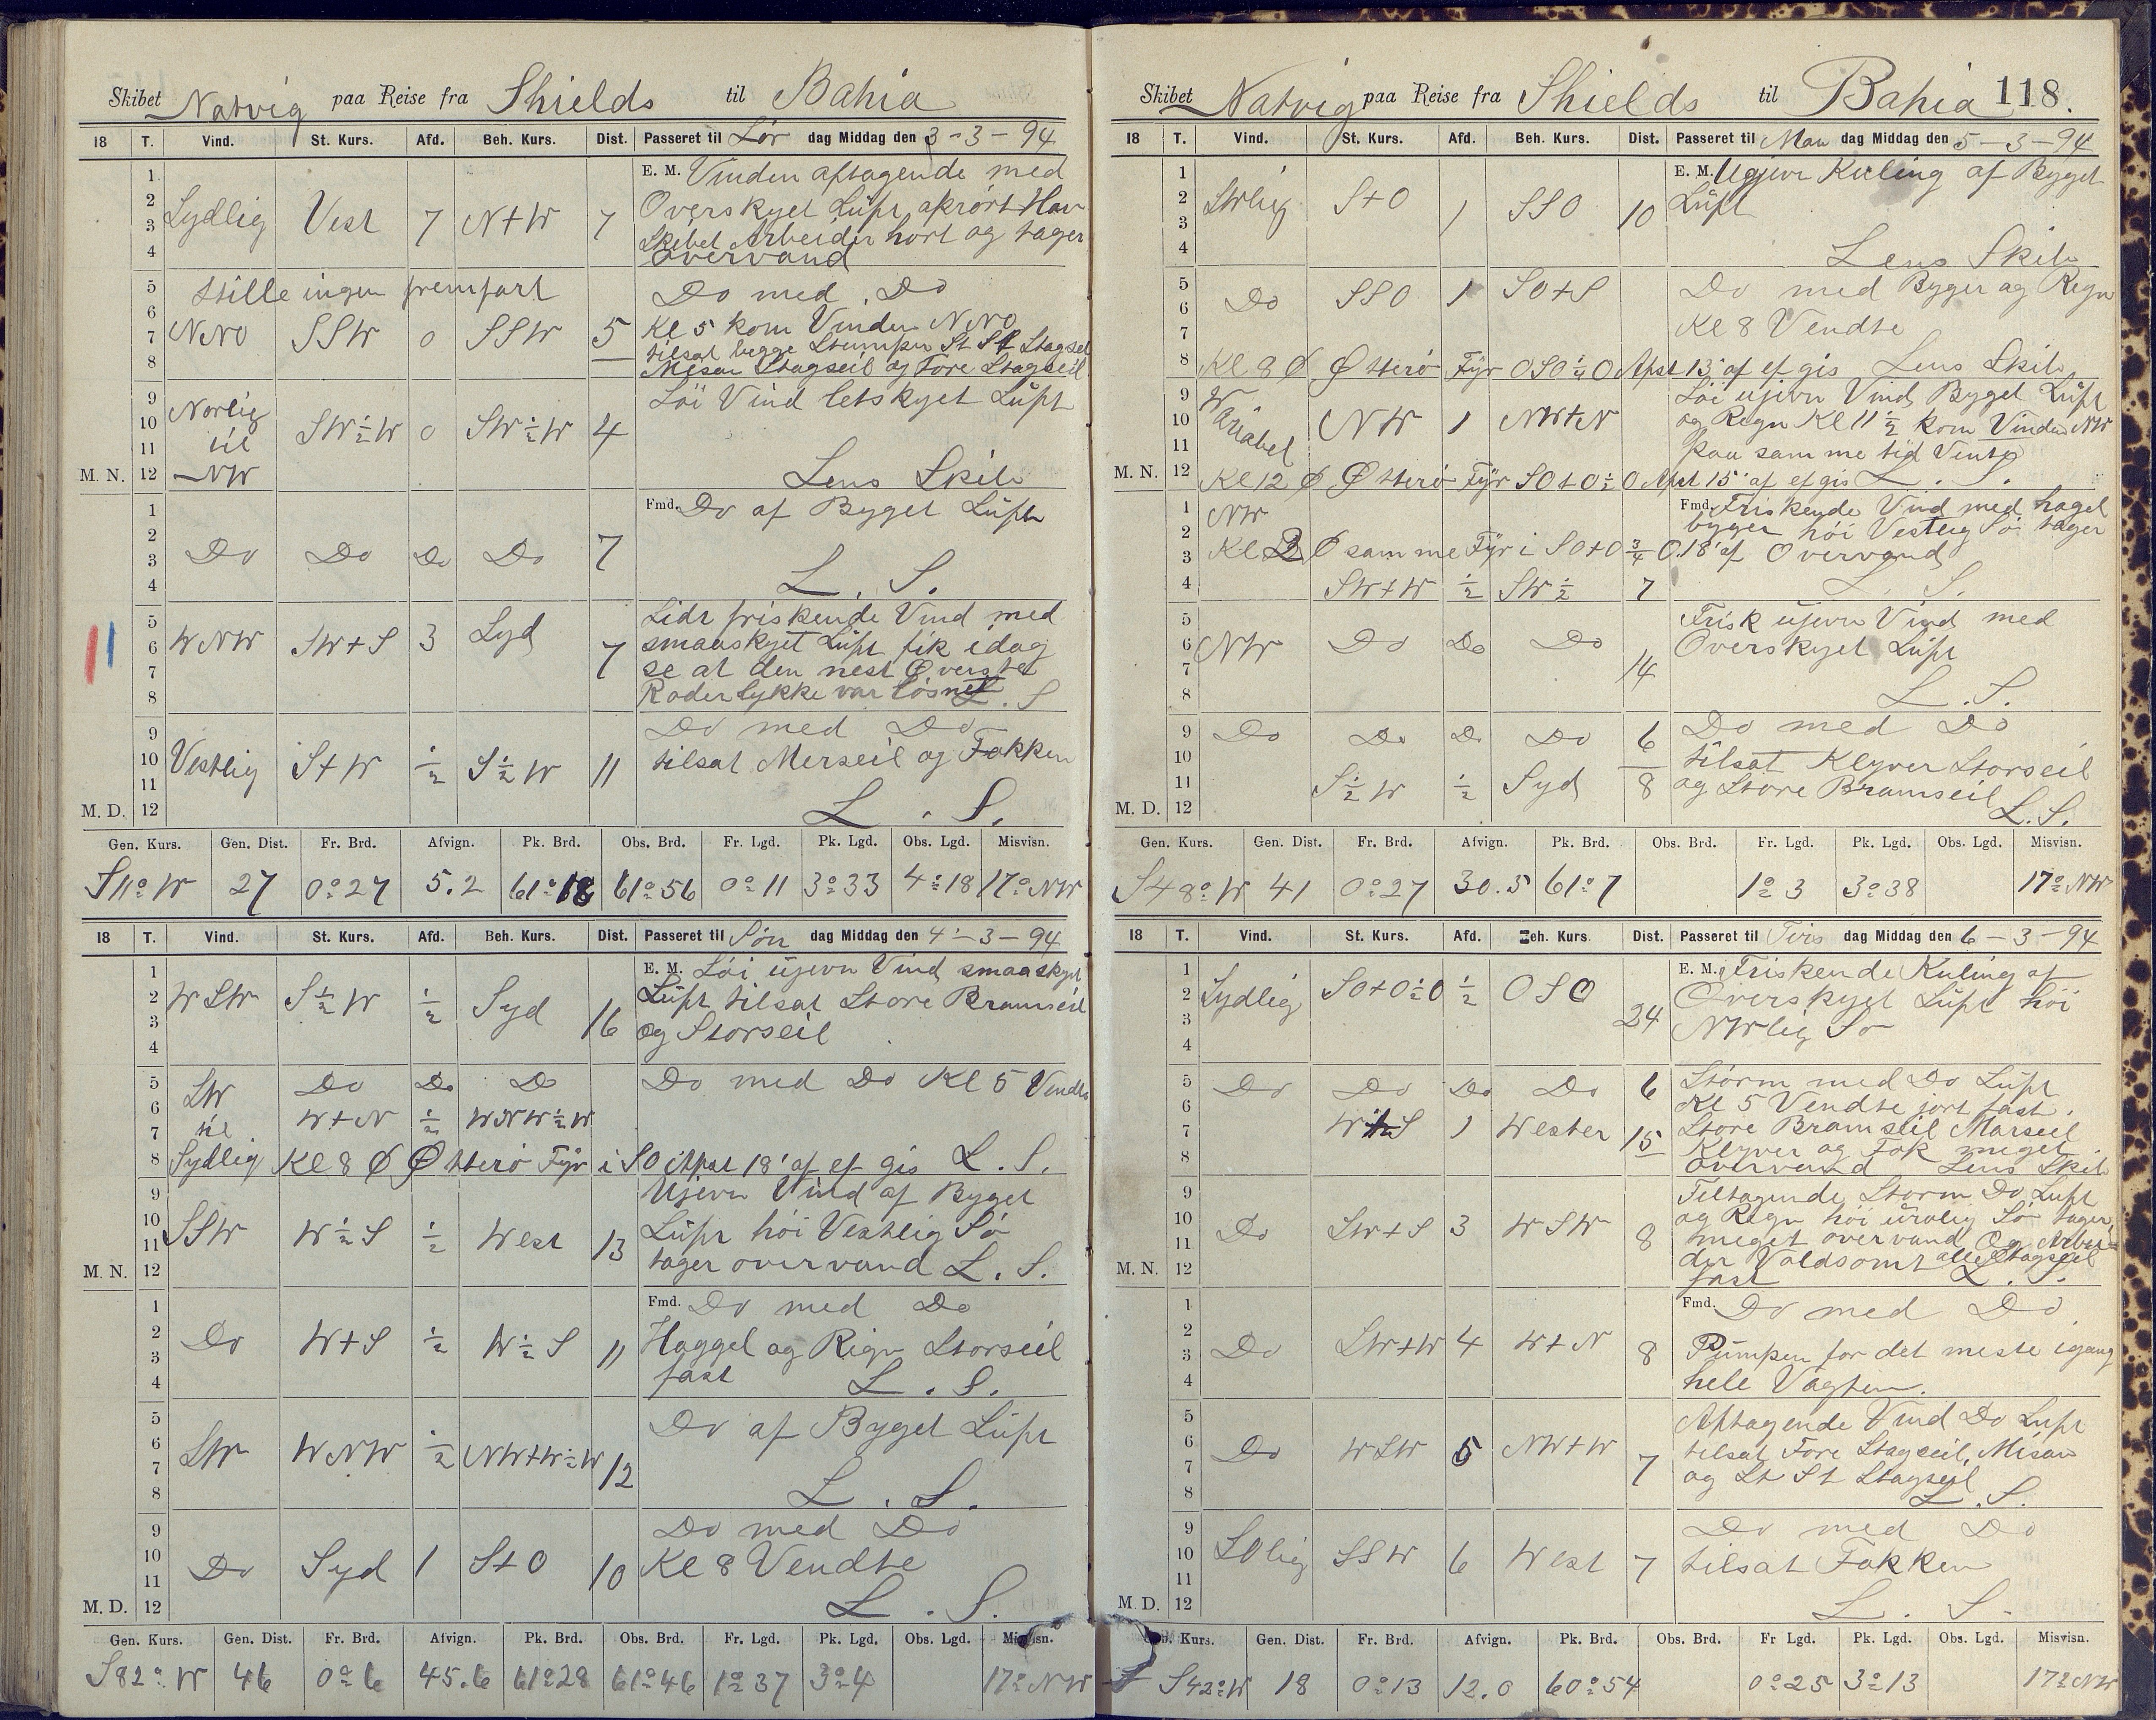 Skibet Natvig paa Reise fra Shields til Bahia
18 T. Vind. St. Kurs. Afd. Beh. Kurs. Dist. Passeret til Lør dag Middag den 3-3-94
1
2
3
4
Sydlig Vest 7 N+W 7
E. M. Vinden aftagende med
Overskyet Luft oprørt Hav
Skibet Arbeider hort og tager
overvand
5
6
7
8
Stille ingen fremfart
NNO SSW 0 SSW 5
Do med Do
Kl 5 kom Vinden NNO
tilsat begge Stumpen St St Stagseil
Mesan Stagseil og Fore Stagseil
9
10
11
M. N. 12
Norlig
til
NW
SW½W 0 SW½W 4
Löi Vind letskyet Luft
Lens Skib
1
2
3
4
Do Do Do Do 7
Fmd. Do af Byget Luft
L. S.
5
6
7
8
WNW SW+S 3 Syd 7
Lidt friskende Vind med
smaaskyet Luft fik idag
se at den nest Øverste
Roderlykke var løsnet L. S
9
10
11
M. D. 12
Vestlig S+W ½ S½W 11
Do med Do
tilsat Merseil og Fokken
L. S.
Gen. Kurs. Gen. Dist. Fr. Brd. Afvign. Pk. Brd. Obs. Brd. Fr. Lgd. Pk. Lgd. Obs. Lgd. Misvisn.
S11°W 27 0°27 5.2 61°18 61°56 0°11 3°33 4°18 17°NW
18 T. Vind. St. Kurs. Afd. Beh. Kurs. Dist. Passeret til Søn dag Middag den 4-3-94
1
2
3
4
WSW S½W ½ Syd 16
E. M. Löi ujevn Vind smaaskyet
Luft tilsat Store Bramseil
og Storseil
5
6
7
8
SW
til
Sydlig
Do Do Do
W+N ½ WNW½W
Do med Do Kl 5 Vendte
Kl 8 Ø Østerö Fyr i SO Afst 18' af ef gis L. S.
9
10
11
M. N. 12
SSW W½S ½ West 13
Ujevn Vind af Byget
Luft höi Vestlig Sö
tager overvand L. S.
1
2
3
4
Do W+S ½ W½S 11
Fmd. Do med Do
Haggel og Rign Storseil
fast L. S.
5
6
7
8
SW WNW ½ NW+W½W 12
Do af Byget Luft
L. S.
9
10
11
M. D. 12
Do Syd 1 S+O 10
Do med Do
Kl 8 Vendte
L. S.
Gen. Kurs. Gen. Dist. Fr. Brd. Afvign. Pk. Brd. Obs. Brd. Fr. Lgd. Pk. Lgd. Obs. Lgd. Misvisn.
S82°W 46 0°6 45.6 61°28 61°46 1°37 3°4 17°NW
Skibet Natvig paa Reise fra Shields til Bahia 118.
18 T. Vind. St. Kurs. Afd. Beh. Kurs. Dist. Passeret til Man dag Middag den 5-3-94
1
2
3
4
SWlig S+O 1 SSO 10
E. M. Ugjevn Kuling af Byget
Luft
Lens Skib
5
6
7
8
Do SSO 1 SO+S
Do med Byger og Regn
Kl 8 Vendte
Kl 8 Ø Østerö Fyr OSO¼O Afst 13' af ef gis Lens Skib
9
10
11
M. N. 12
Variabel NW 1 NW+N
Löi ujevn Vind Byget Luft
og Regn Kl 11½ kom Vinden NW
paa samme tid Vente
Kl 12 Ø Østerö Fyr SO+O½O Afst 15' af ef gis L. S.
1
2
3
4
NW
Fmd. Friskende Vind med hagel
bygger höi Vestlig Sö tager
Kl 2 Ø samme Fyr i SO+O¾O 18' af Overvand
SW+W ½ SW½ 7
L. S.
5
6
7
8
NW Do Do Do 14
Frisk ujevn Vind med
Overskyet Luft
L. S.
9
10
11
M. D. 12
Do Do Do Do 6
S½W ½ Syd 8
Do med Do
tilsat Klyver Storseil
og Store Bramseil L. S.
Gen. Kurs. Gen. Dist. Fr. Brd. Afvign. Pk. Brd. Obs. Brd. Fr. Lgd. Pk. Lgd. Obs. Lgd. Misvisn.
S48°W 41 0°27 30.5 61°7 1°3 3°38 17°NW
18 T. Vind. St. Kurs. Afd. Beh. Kurs. Dist. Passeret til Tirs dag Middag den 6-3-94
1
2
3
4
Sydlig SO+O½O ½ OSO 24
E. M. Friskende Kuling af
Overskyet Luft höi
NWlig Sö
5
6
7
8
Do Do Do Do 6
W+S 1 Wester 15
Störm med Do Luft
Kl 5 Vendte jort fast
Store Bramseil Marseil
Klyver og Fok meget
overvand Lens Skib
9
10
11
M. N. 12
Do SW+S 3 WSW 8
Tiltagende Storm Do Luft
og Regn höi urolig Sö tager
meget overvand Og Arbei-
der Voldsomt alle Stagseil
fast L. S.
1
2
3
4
Do SW+W 4 W+N 8
Fmd. Do med Do
Pumpen for det meste igang
hele Vagten.
5
6
7
8
Do WSW 5 NW+W 7
Aftagende Vind Do Luft
tilsat Fore Stagseil, Misan
og St St Stagseil
L. S.
9
10
11
M. D. 12
SOlig SSW 6 West 7
Do med Do
tilsat Fokken
L. S.
Gen. Kurs. Gen. Dist. Fr. Brd. Afvign. Pk. Brd. Obs. Brd. Fr Lgd. Pk. Lgd. Obs. Lgd. Misvisn.
S42°W 18 0°13 12.0 60°54 0°25 3°13 17°NW